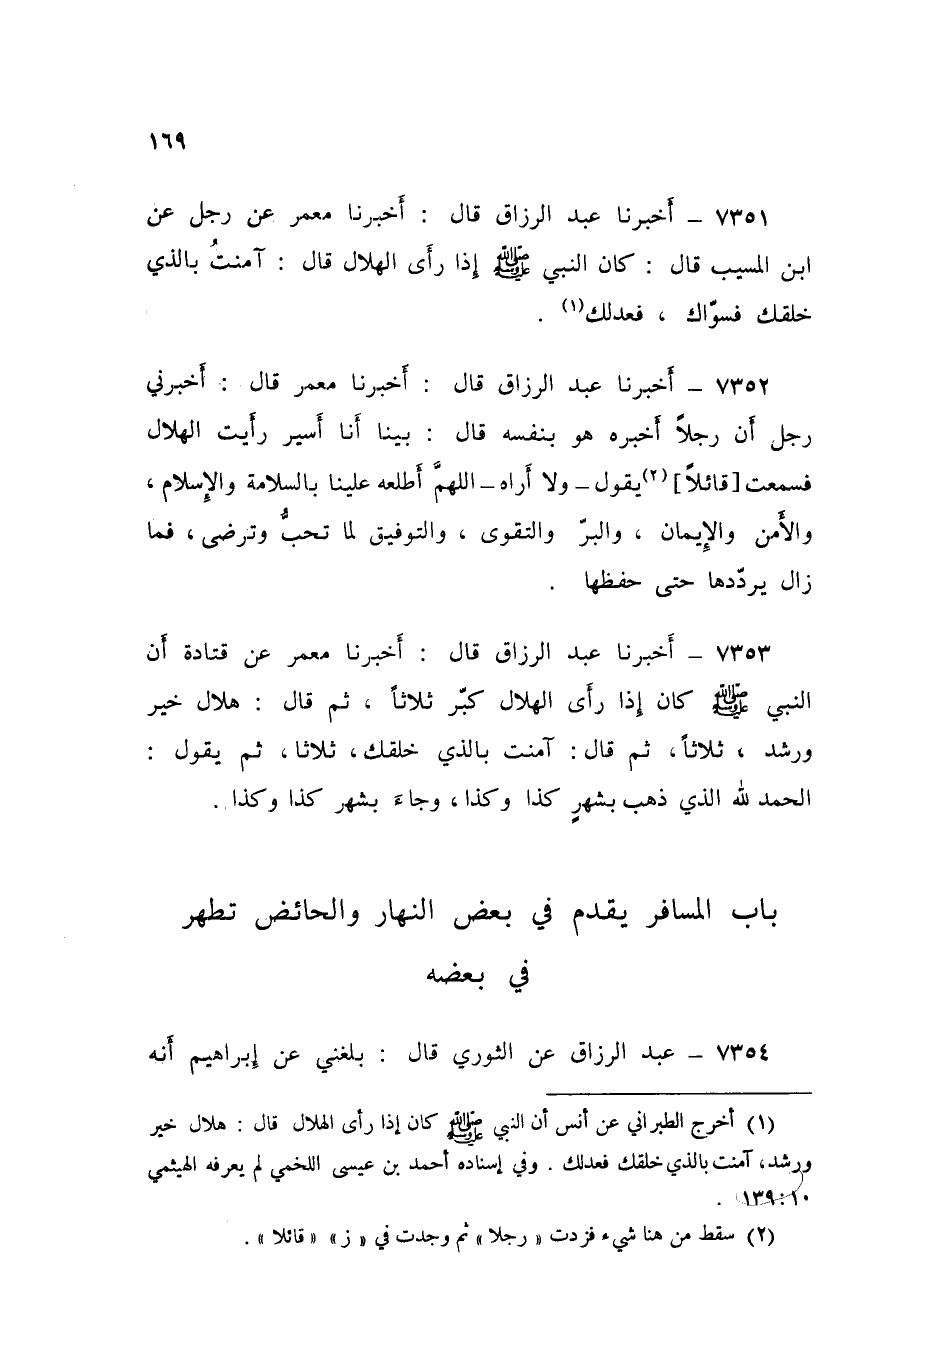 ١٦٩
٧٣٥١ ـ أخبرنا عبد الرزاق قال : أخبرنا معمر عن رجل عن
ابن المسيب قال : كان النبي ﷺ إذا رأى الهلال قال : آمنتُ بالذي
خلقك فسوّاك ، فعدلك(١) .
٧٣٥٢ ـ أخبرنا عبد الرزاق قال : أخبرنا معمر قال : أخبرني
رجل أن رجلاً أخبره هو بنفسه قال : بينا أنا أسير رأيت الهلال
فسمعت [قائلاً](٢) يقول ـ ولا أراه ـ اللهمَّ أطلعه علينا بالسلامة والإسلام ،
والأمن والإيمان ، والبرّ والتقوى ، والتوفيق لما تحبُّ وترضى ، فما
زال يردّدها حتى حفظها .
٧٣٥٣ ـ أخبرنا عبد الرزاق قال : أخبرنا معمر عن قتادة أن
النبي ﷺ كان إذا رأى الهلال كبّر ثلاثاً ، ثم قال : هلال خير
ورشد ، ثلاثاً ، ثم قال : آمنت بالذي خلقك ، ثلاثا ، ثم يقول :
الحمد لله الذي ذهب بشهرٍ كذا وكذا ، وجاءَ بشهر كذا وكذا .
باب المسافر يقدم في بعض النهار والحائض تطهر
في بعضه
٧٣٥٤ ـ عبد الرزاق عن الثوري قال : بلغني عن إبراهيم أنه
(١) أخرج الطبراني عن أنس أن النبي ﷺ كان إذا رأى الهلال قال : هلال خير
ورشد، آمنت بالذي خلقك فعدلك . وفي إسناده أحمد بن عيسى اللخمي لم يعرفه الهيثمي
١٠ : ١٣٩ .
(٢) سقط من هنا شيء فزدت « رجلا » ثم وجدت في « ز » « قائلا » .